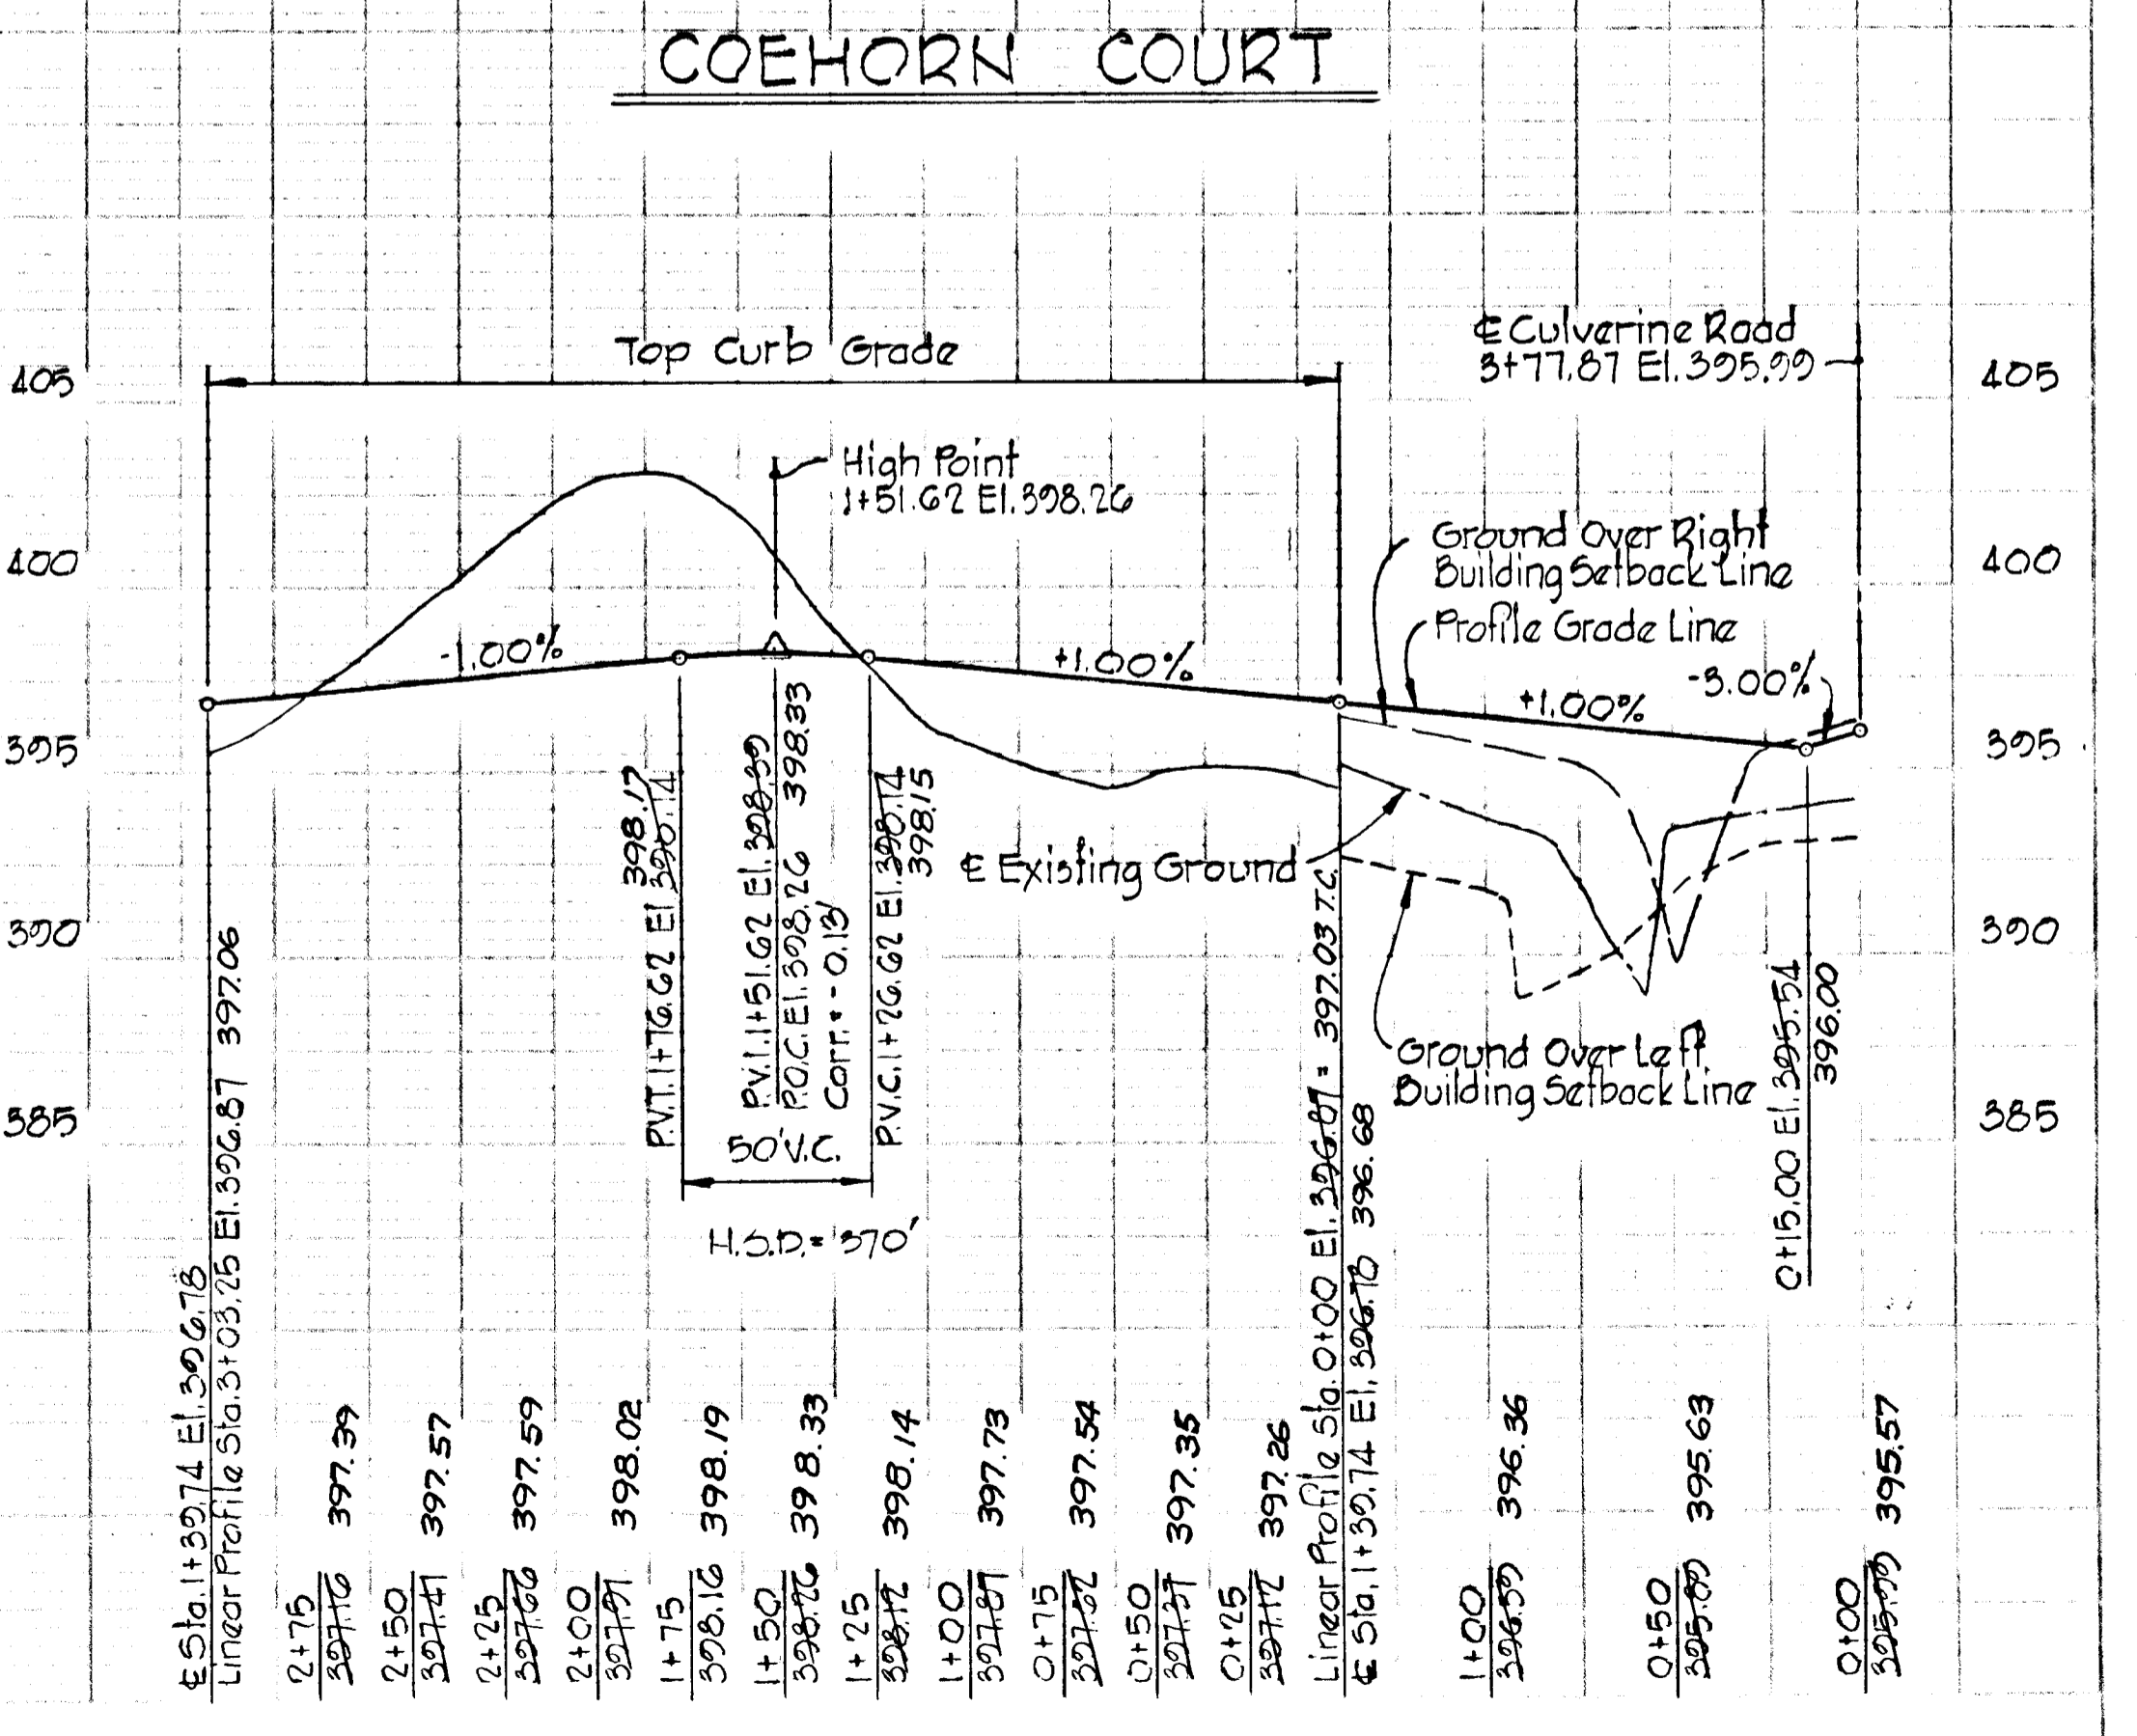 COEHORN COURT
Top Curb Grade
℄ Culverine Road
3+77.87 El. 395.99
405
405
High Point
1+51.62 El. 398.26
400
400
Ground Over Right
Building Setback Line
Profile Grade Line
-1.00%
+1.00%
+1.00%
-3.00%
395
395
℄ Existing Ground
390
390
Ground Over Left
Building Setback Line
385
385
398.17
P.V.T. 1+76.62 El 398.14
P.V.I. 1+51.62 El. 398.39
P.O.C. El. 398.26 398.33
Corr. = -0.13'
P.V.C. 1+26.62 El. 398.14
398.15
50' V.C.
H.S.D. = 370'
0+15.00 El. 395.54
396.00
℄ Sta. 1+39.74 El. 396.78
Linear Profile Sta. 3+03.25 El. 396.87 397.06
2+75
397.16 397.39
2+50
397.41 397.57
2+25
397.66 397.59
2+00
397.91 398.02
1+75
398.16 398.19
1+50
398.26 398.33
1+25
398.12 398.14
1+00
397.87 397.73
0+75
397.62 397.54
0+50
397.37 397.35
0+25
397.12 397.26
Linear Profile Sta. 0+00 El. 396.87 = 397.03 T.C.
℄ Sta. 1+39.74 El. 396.78 396.68
1+00
396.39 396.36
0+50
395.89 395.63
0+00
395.99 395.57